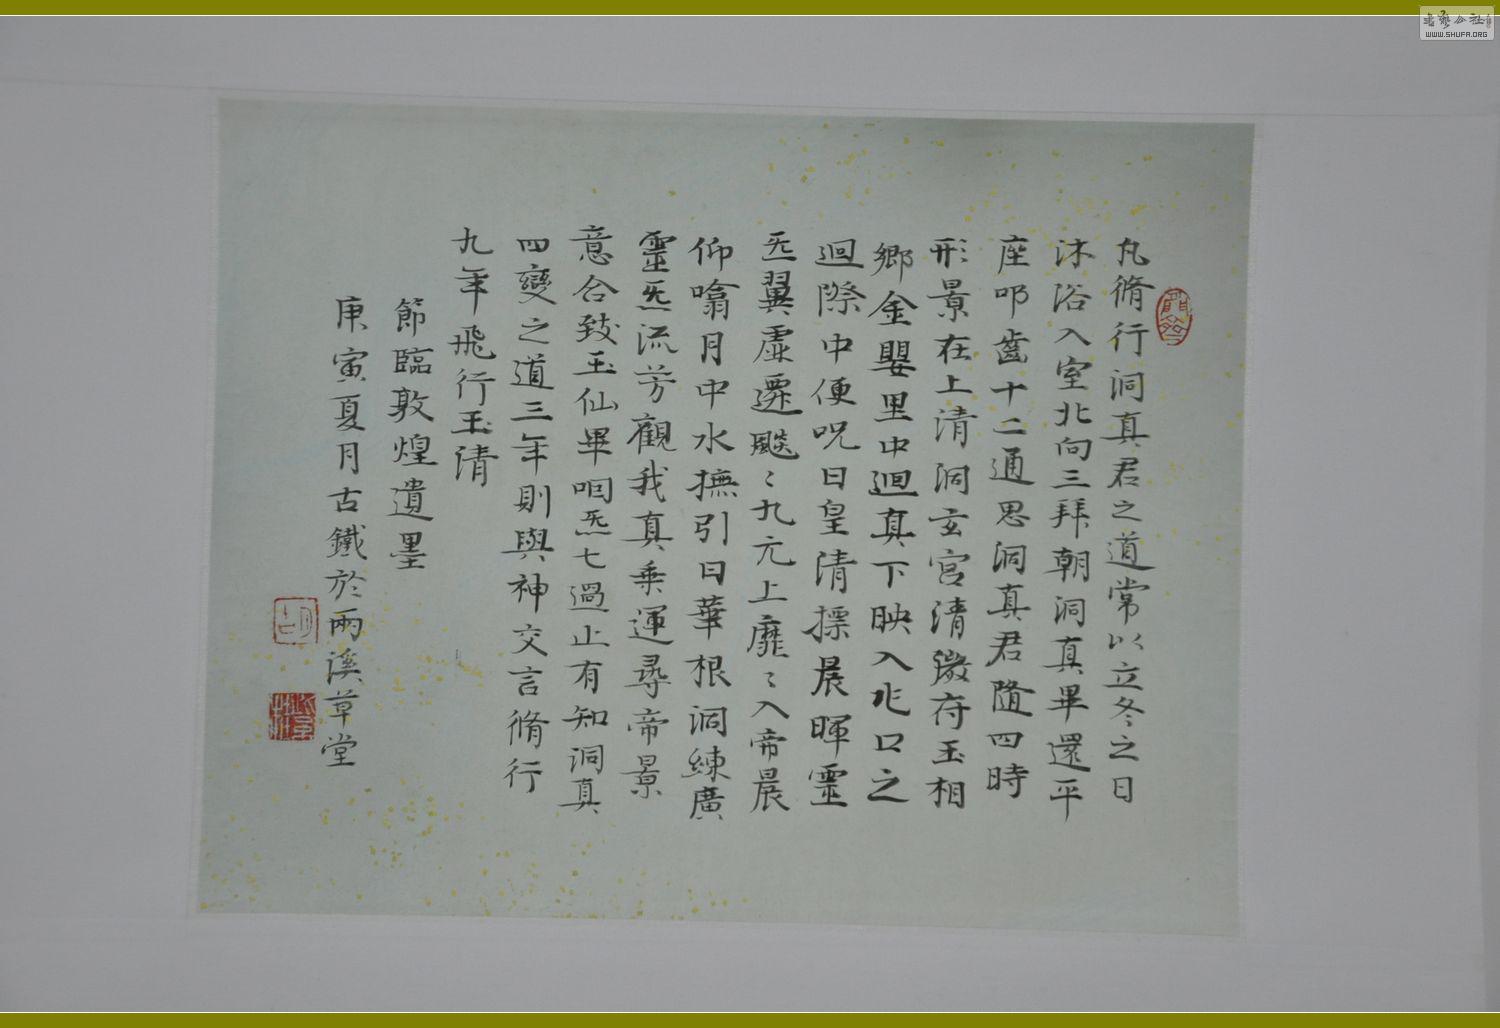 凡脩行洞真君之道常以立冬之日
沐浴入室北向三拜朝洞真畢還平
座叩齒十二通思洞真君隨四時
形景在上清洞玄宮清微府玉相
鄉金嬰里中迴真下映入兆口之
迴際中便呪曰皇清摽晨暉靈
炁翼虛遷飈〻九元上靡〻入帝晨
仰噏月中水撫引日華根洞練廣
靈炁流芳觀我真乘運尋帝景
意合致玉仙畢咽炁七過止有知洞真
四變之道三年則與神交言脩行
九年飛行玉清
節臨敦煌遺墨
庚寅夏月古鐵於兩溪草堂
WWW.SHUFA.ORG